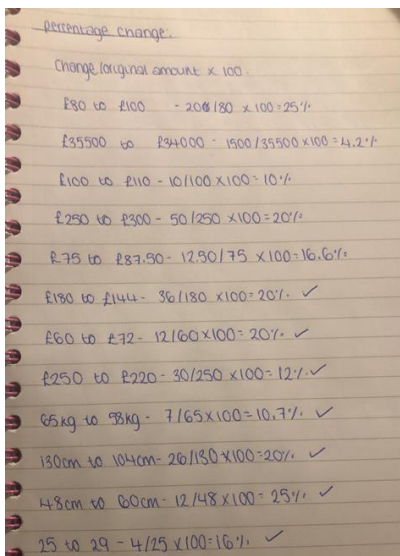 percentage change:
Change/original amount × 100
£80 to £100 - 20/80 × 100 = 25%
£35500 to £34000 - 1500/35500 × 100 = 4.2%
£100 to £110 - 10/100 × 100 = 10%
£250 to £300 - 50/250 × 100 = 20%
£75 to £87.50 - 12.50/75 × 100 = 16.6%
£180 to £144 - 36/180 × 100 = 20% ✓
£60 to £72 - 12/60 × 100 = 20% ✓
£250 to £220 - 30/250 × 100 = 12% ✓
65kg to 58kg - 7/65 × 100 = 10.7% ✓
130cm to 104cm - 26/130 × 100 = 20% ✓
48cm to 60cm - 12/48 × 100 = 25% ✓
25 to 29 - 4/25 × 100 = 16% ✓